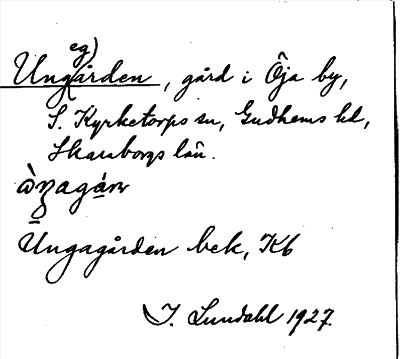 eg)
Ungården, gård i Öja by,
S. Kyrketorps sn, Gudhems hd,
Skaraborgs län.
Ungagården bek, Kb
I. Lundahl 1927.